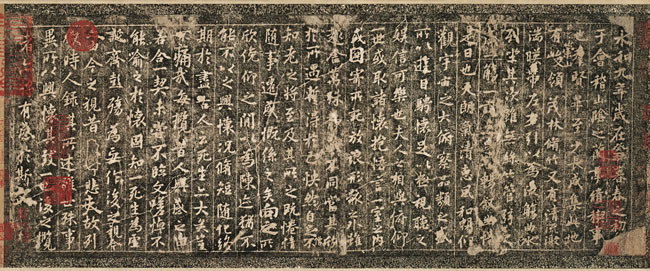 永和九年歲在癸丑暮春之初
于會稽山陰之蘭亭脩稧事
也群賢畢至少長咸集此地
有峻領茂林脩竹又有清流激
湍暎帶左右引以為流觴曲水
列坐其次雖無絲竹管
一觴一詠亦足以暢敘幽情
是日也天朗氣清惠風和暢仰
觀宇宙之大俯察品類之盛
所以遊目騁懷足以極視聽之
娛信可樂也夫人之相與俯仰
一世或取諸懷抱悟言一室之內
或因寄所託放浪形骸之外雖
趣舍萬殊靜躁不同當其欣
於所遇暫得於己快然自足不
知老之將至及其所之既惓情
隨事遷感慨係之矣向之所
欣俛仰之閒以為陳迹猶不
能不以之興懷況脩短隨化終
期於盡古人云死生亦大矣豈
不痛哉每攬昔人興感之由
若合一契未嘗不臨文嗟悼不
能喻之於懷固知一死生為虛
誕齊彭殤為妄作後之視今
亦由今之視昔悲夫故列
敘時人錄其所述雖世殊事
異所以興懷其致一也後之攬
者亦將有感於斯文